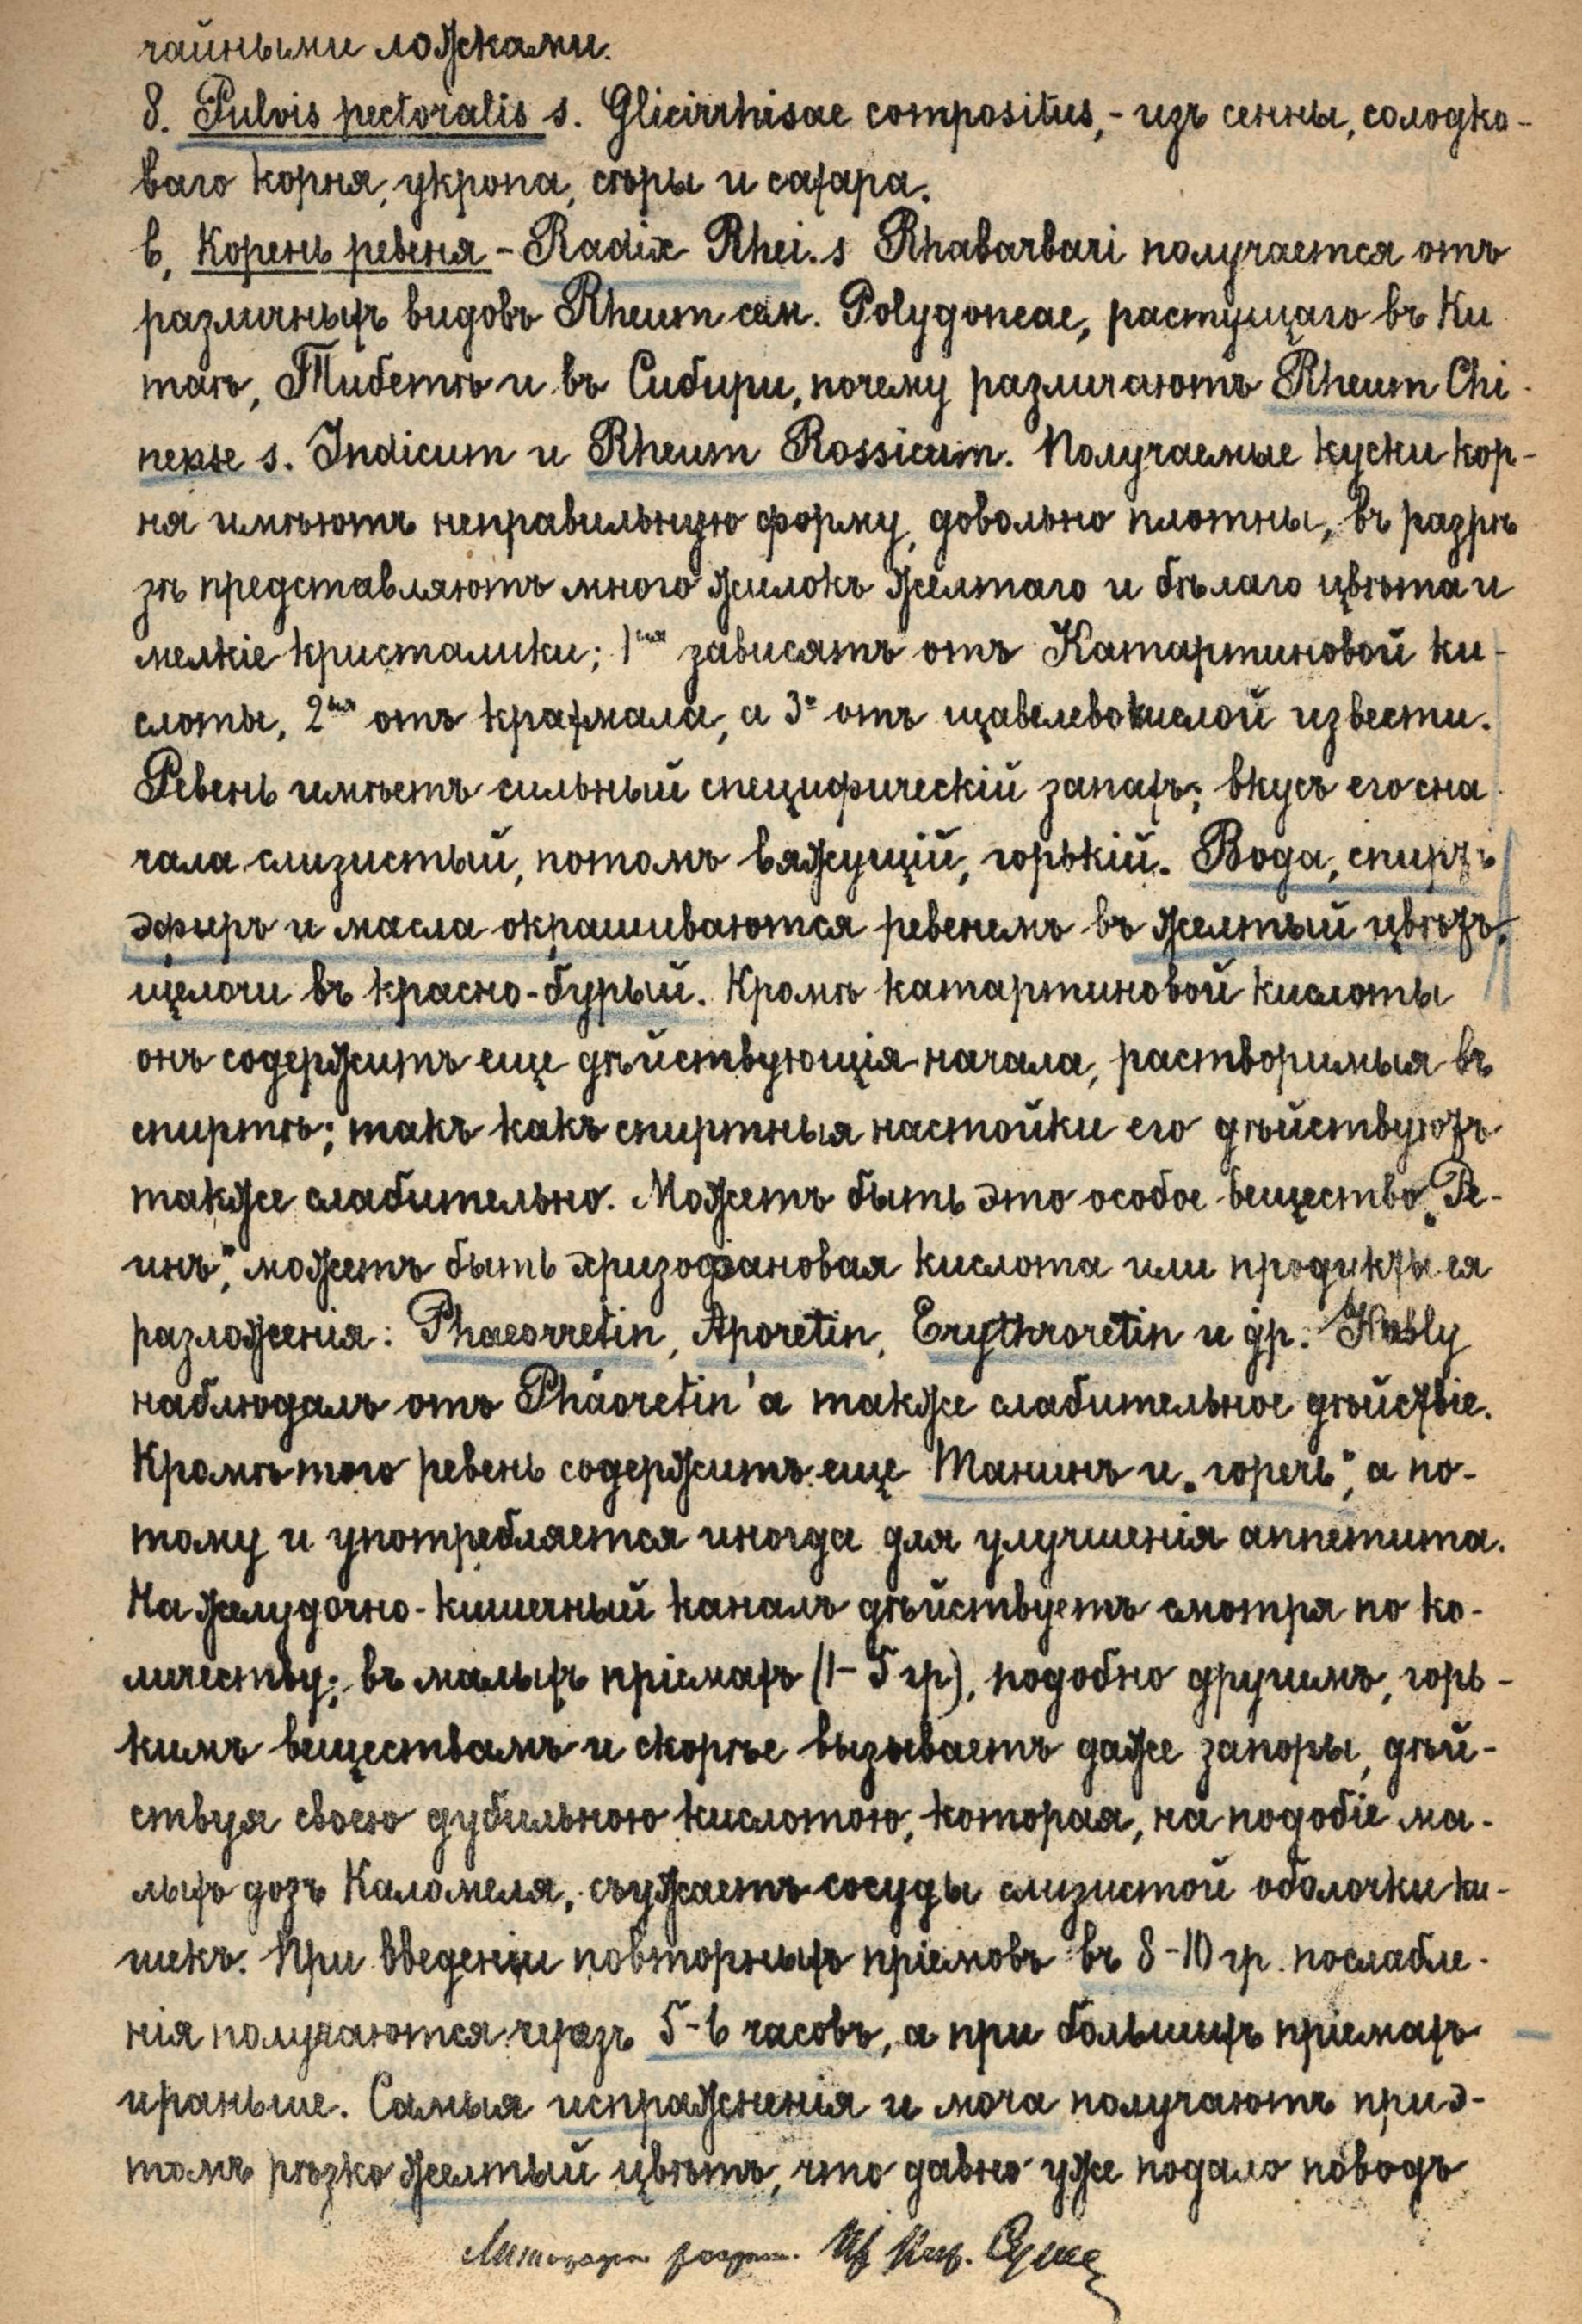 чайными ложками.
8. Pulvis pectoralis s. Glicirrhisae compositus, - изъ сенны, солодко-
ваго корня, укропа, сѣры и сахара.
в, Корень ревеня - Radix Rhei. s Rhabarbari получается отъ
различныхъ видовъ Rheum сем. Polygoneae, растущаго въ Ки
таѣ, Тибетѣ и въ Сибири, почему различаютъ Rheum Chi-
nense s. Indicum и Rheum Rossicum. Получаемые куски кор-
ня имѣютъ неправильную форму, довольно плотны, въ разрѣ
зѣ представляютъ много жилокъ желтаго и бѣлаго цвѣта и
мелкіе кристалики; 1ыя зависятъ отъ Катартиновой ки-
слоты, 2ыя отъ крахмала, а 3е отъ щавелевокислой извести.
Ревень имѣетъ сильный специфическій запахъ; вкусъ его сна-
чала слизистый, потомъ вяжущій, горькій. Вода, спиртъ
эфыръ и масла окрашиваются ревенемъ въ желтый цвѣтъ,
щелочи въ красно-бурый. Кромѣ катартиновой кислоты
онъ содержитъ еще дѣйствующія начала, растворимыя въ
спиртѣ; такъ какъ спиртныя настойки его дѣйствуютъ
также слабительно. Можетъ быть это особое вещество „Ре-
инъ", можетъ быть хризофановая кислота или продукты ея
разложенія: Phaeorretin, Aporetin, Erythroretin и др. Kubly
наблюдалъ отъ Phäoretin'а также слабительное дѣйствіе.
Кромѣ того ревень содержитъ еще Танинъ и „горечь", а по-
тому и употребляется иногда для улучшенія аппетита.
На желудочно-кишечный каналъ дѣйствуетъ смотря по ко-
личеству; въ малыхъ пріемахъ (1-5 гр), подобно другимъ, горь-
кимъ веществамъ и скорѣе вызываетъ даже запоры, дѣй-
ствуя своею дубильною кислотою, которая, на подобіе ма-
лыхъ дозъ Каломеля, съужаетъ сосуды слизистой оболочки ки-
шекъ. При введеніи повторныхъ пріемовъ въ 8-10 гр. послабле-
нія получаются черезъ 5-6 часовъ, а при большихъ пріемахъ
и раньше. Самыя испражненія и моча получаютъ при э-
томъ рѣзко желтый цвѣтъ, что давно уже подало поводъ